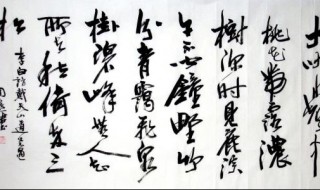 吠水
桃花带露浓
树深时见鹿溪
午不闻钟野竹
分青霭飞泉
挂碧峰无人知
所去愁倚两三
松
李白诗戴天山道士